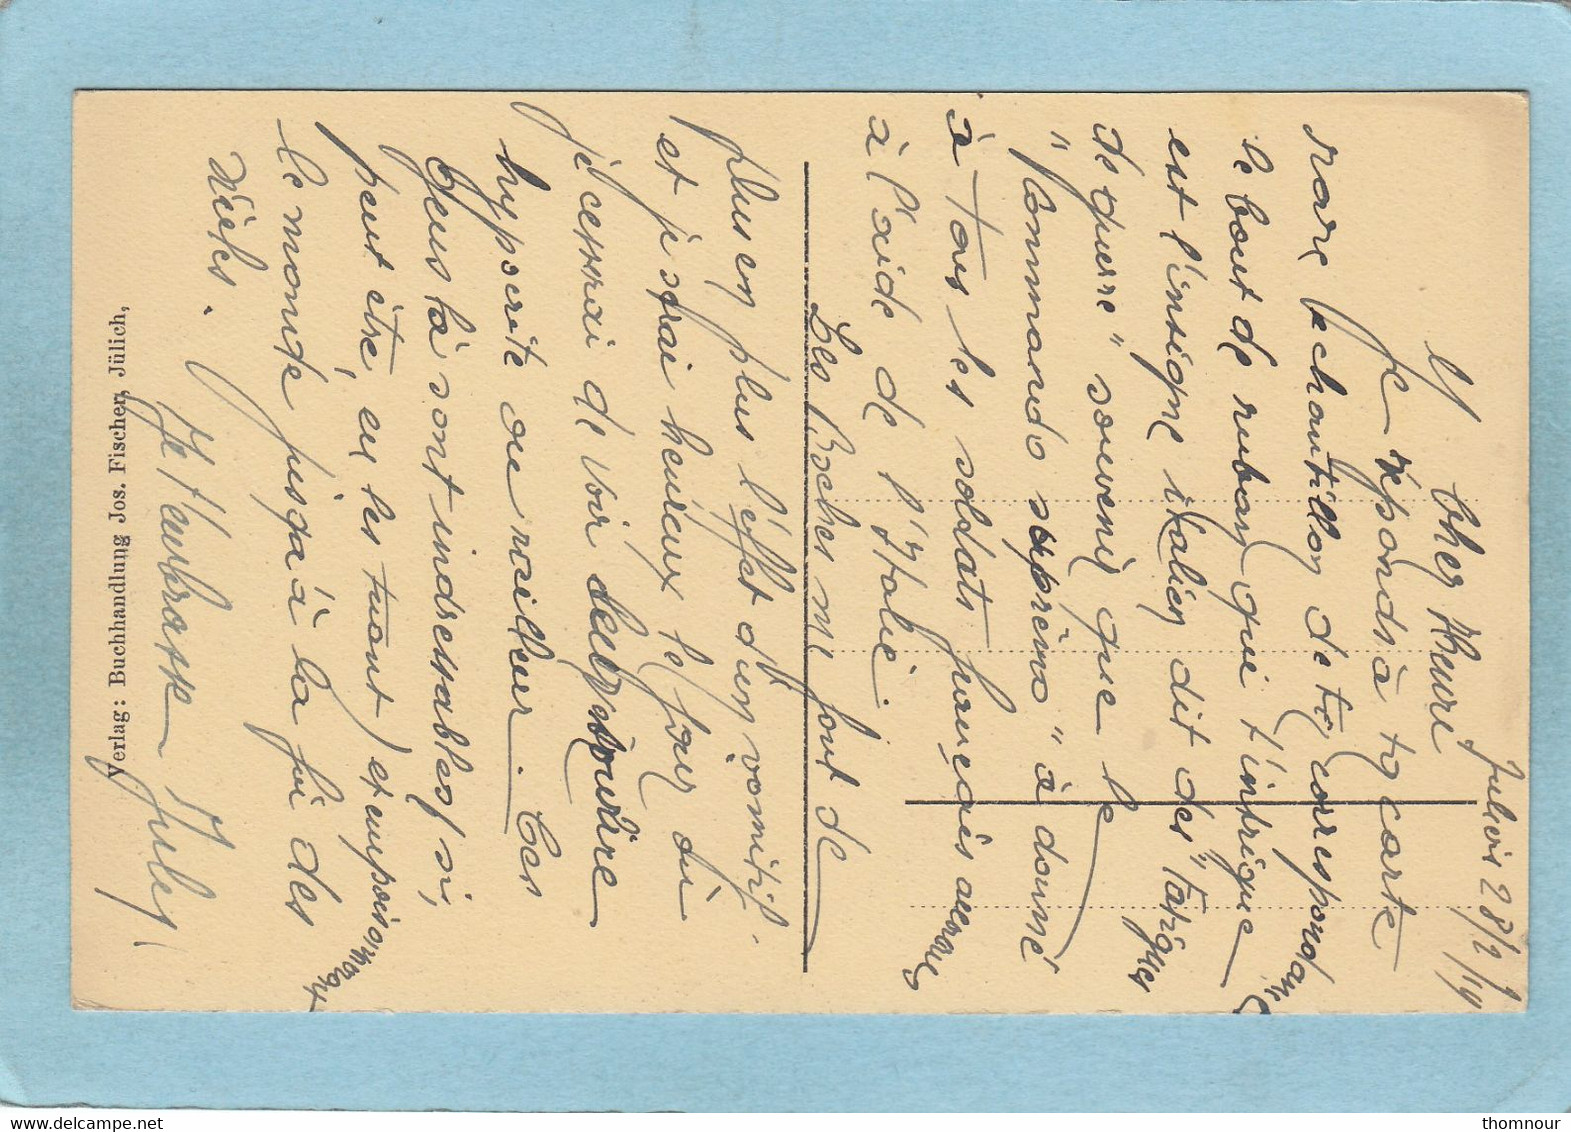 Juliers 28/2/19
Cher Henri
Je réponds à ta carte
rare échantillon de ta correspondance
le bout de ruban qui t'intrigue
est l'insigne italien dit des "fatigues
de guerre" souvenir que le
"Commando supremo" à donné
à tous les soldats français accourus
à l'aide de l'Italie.
Les Boches me font de
plus en plus l'effet d'un vomitif
et je serai heureux le jour où
je cesserai de voir leur sourire
hypocrite ou railleur. Ces
gens là sont indressables (si,
peut être, en les tuant) et empoisonneront
le monde jusqu'à la fin des
siècles.
Je t'embrasse Jules
Verlag: Buchhandlung Jos. Fischer, Jülich,
thomnour